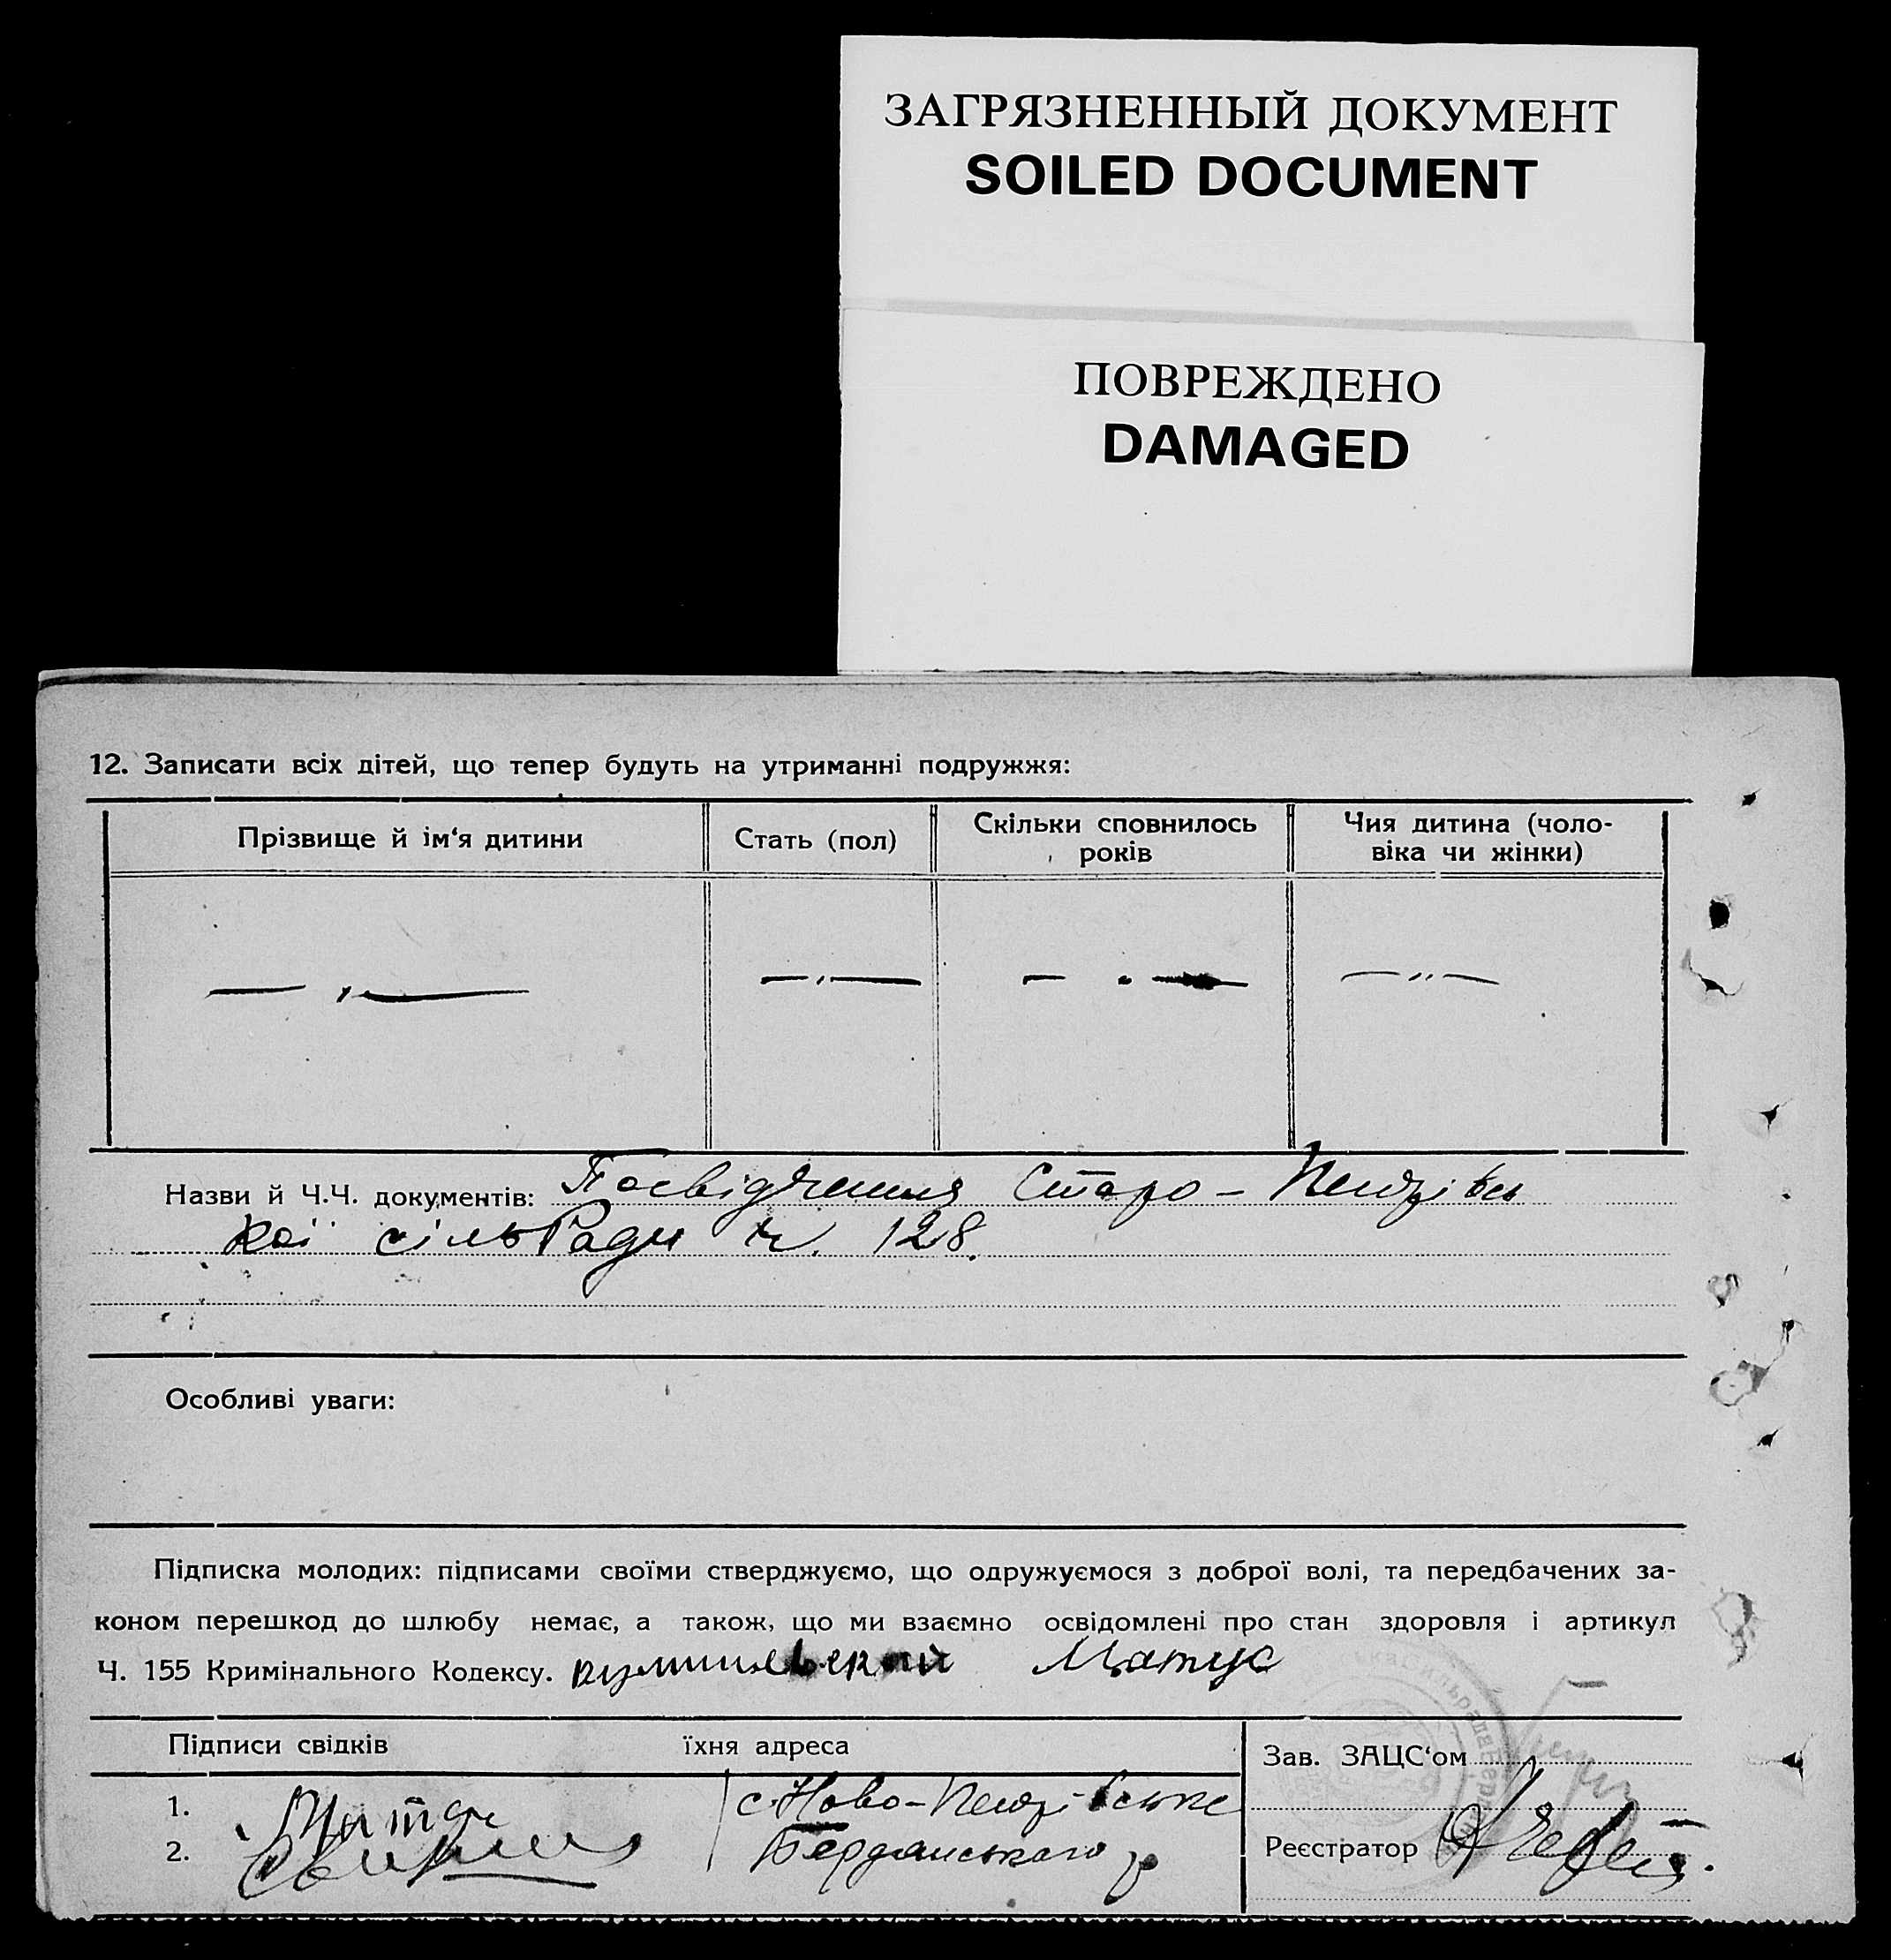 ЗАГРЯЗНЕННЫЙ ДОКУМЕНТ
SOILED DOCUMENT
ПОВРЕЖДЕНО
DAMAGED
12. Записати всіх дітей, що тепер будуть на утриманні подружжя:
Прізвище й ім‘я дитини Стать (пол) Скільки сповнилось років Чия дитина (чоловіка чи жінки)
— „ — — „ — — „ — — „ —
Назви й Ч.Ч. документів: Посвідчення Старо-
кої сільРади ч. 128.
Особливі уваги:
Підписка молодих: підписами своїми стверджуємо, що одружуємося з доброї волі, та передбачених за-
коном перешкод до шлюбу немає, а також, що ми взаємно освідомлені про стан здоровля і артикул
Ч. 155 Кримінального Кодексу.
Підписи свідків їхня адреса Зав. ЗАЦС‘ом
1. с. Ново-
2. Бердянського р Реєстратор